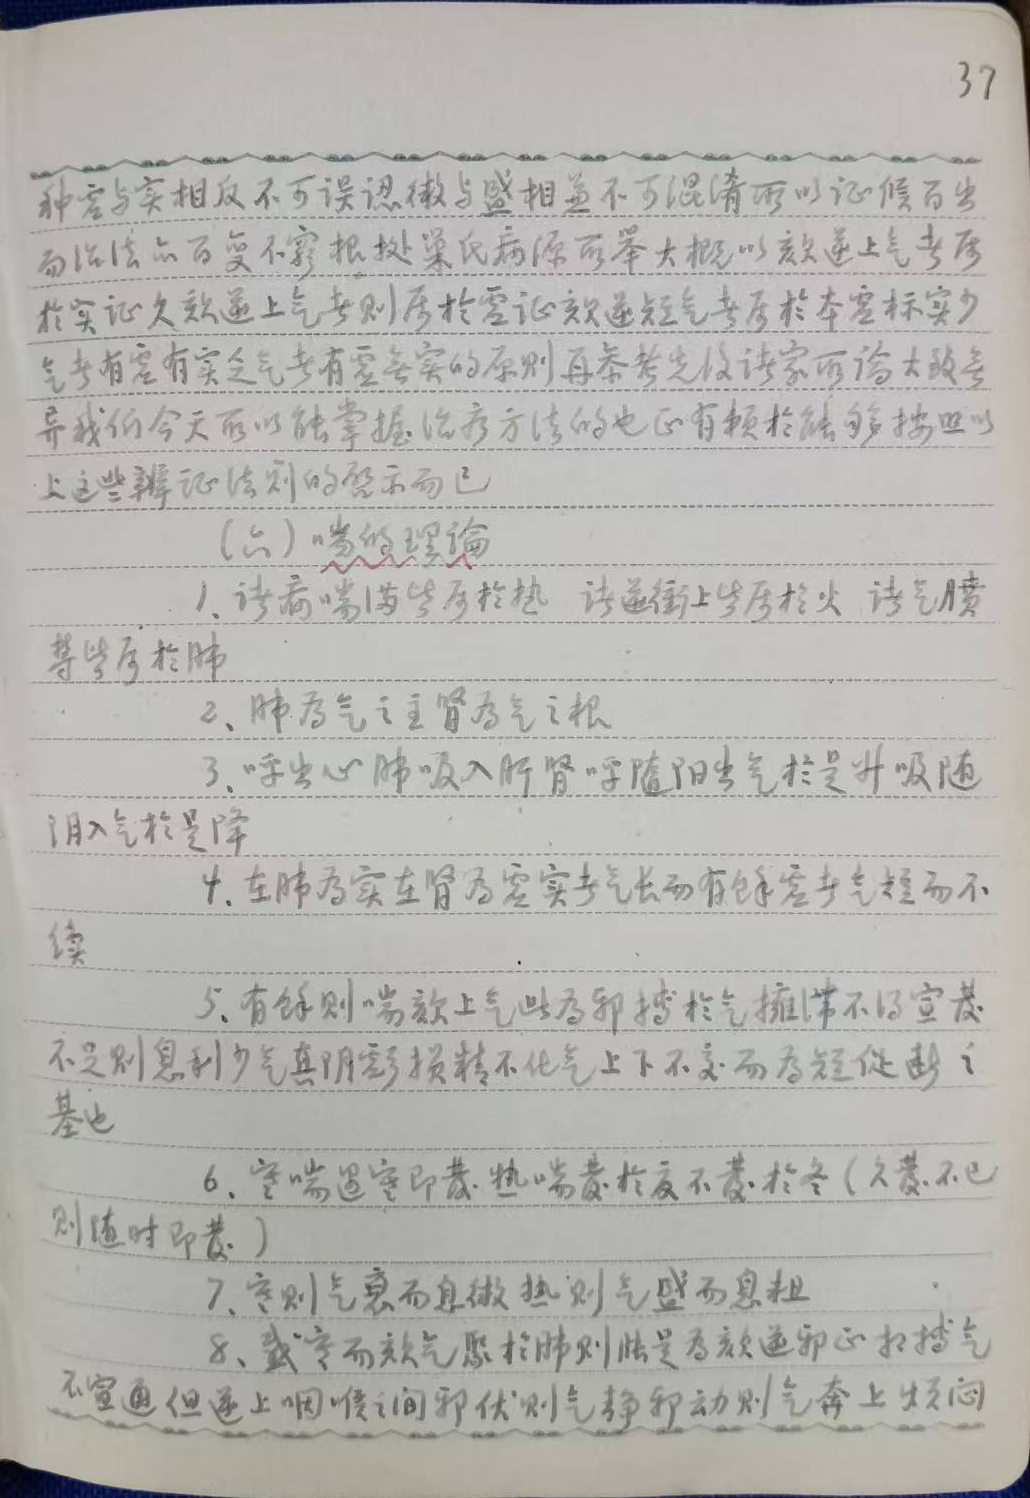 37
种虚与实相反不可误认微与盛相并不可混淆所以证候百出
而治法亦百变不穷根据巢氏病源所举大概以欬逆上气者属
於实证久欬逆上气者则属於虚证欬逆短气者属於本虚标实少
气者有虚有实乏气者有虚无实的原则再参考先後诸家所论大致无
异我们今天所以能掌握治疗方法的也正有赖於能够按照以
上这些辨证法则的启示而已
(六)喘的理论
1、诸病喘满皆属於热 诸逆衝上皆属於火 诸气膹
等皆属於肺
2、肺为气之主肾为气之根
3、呼出心肺吸入肝肾呼随阳出气於是升吸随
阴入气於是降
4、在肺为实在肾为虚实者气长而有馀虚者气短而不
续
5、有馀则喘欬上气此为邪搏於气拥滞不得宣发
不足则息利少气真阴亏损精不化气上下不交而为短促断之
基也
6、寒喘遇寒即发热喘发於夏不发於冬(久发不已
则随时即发)
7、寒则气衰而息微热则气盛而息粗
8、感寒而欬气聚於肺则胀是为欬逆邪正相搏气
不宣通但逆上咽喉之间邪伏则气静邪动则气奔上烦闷